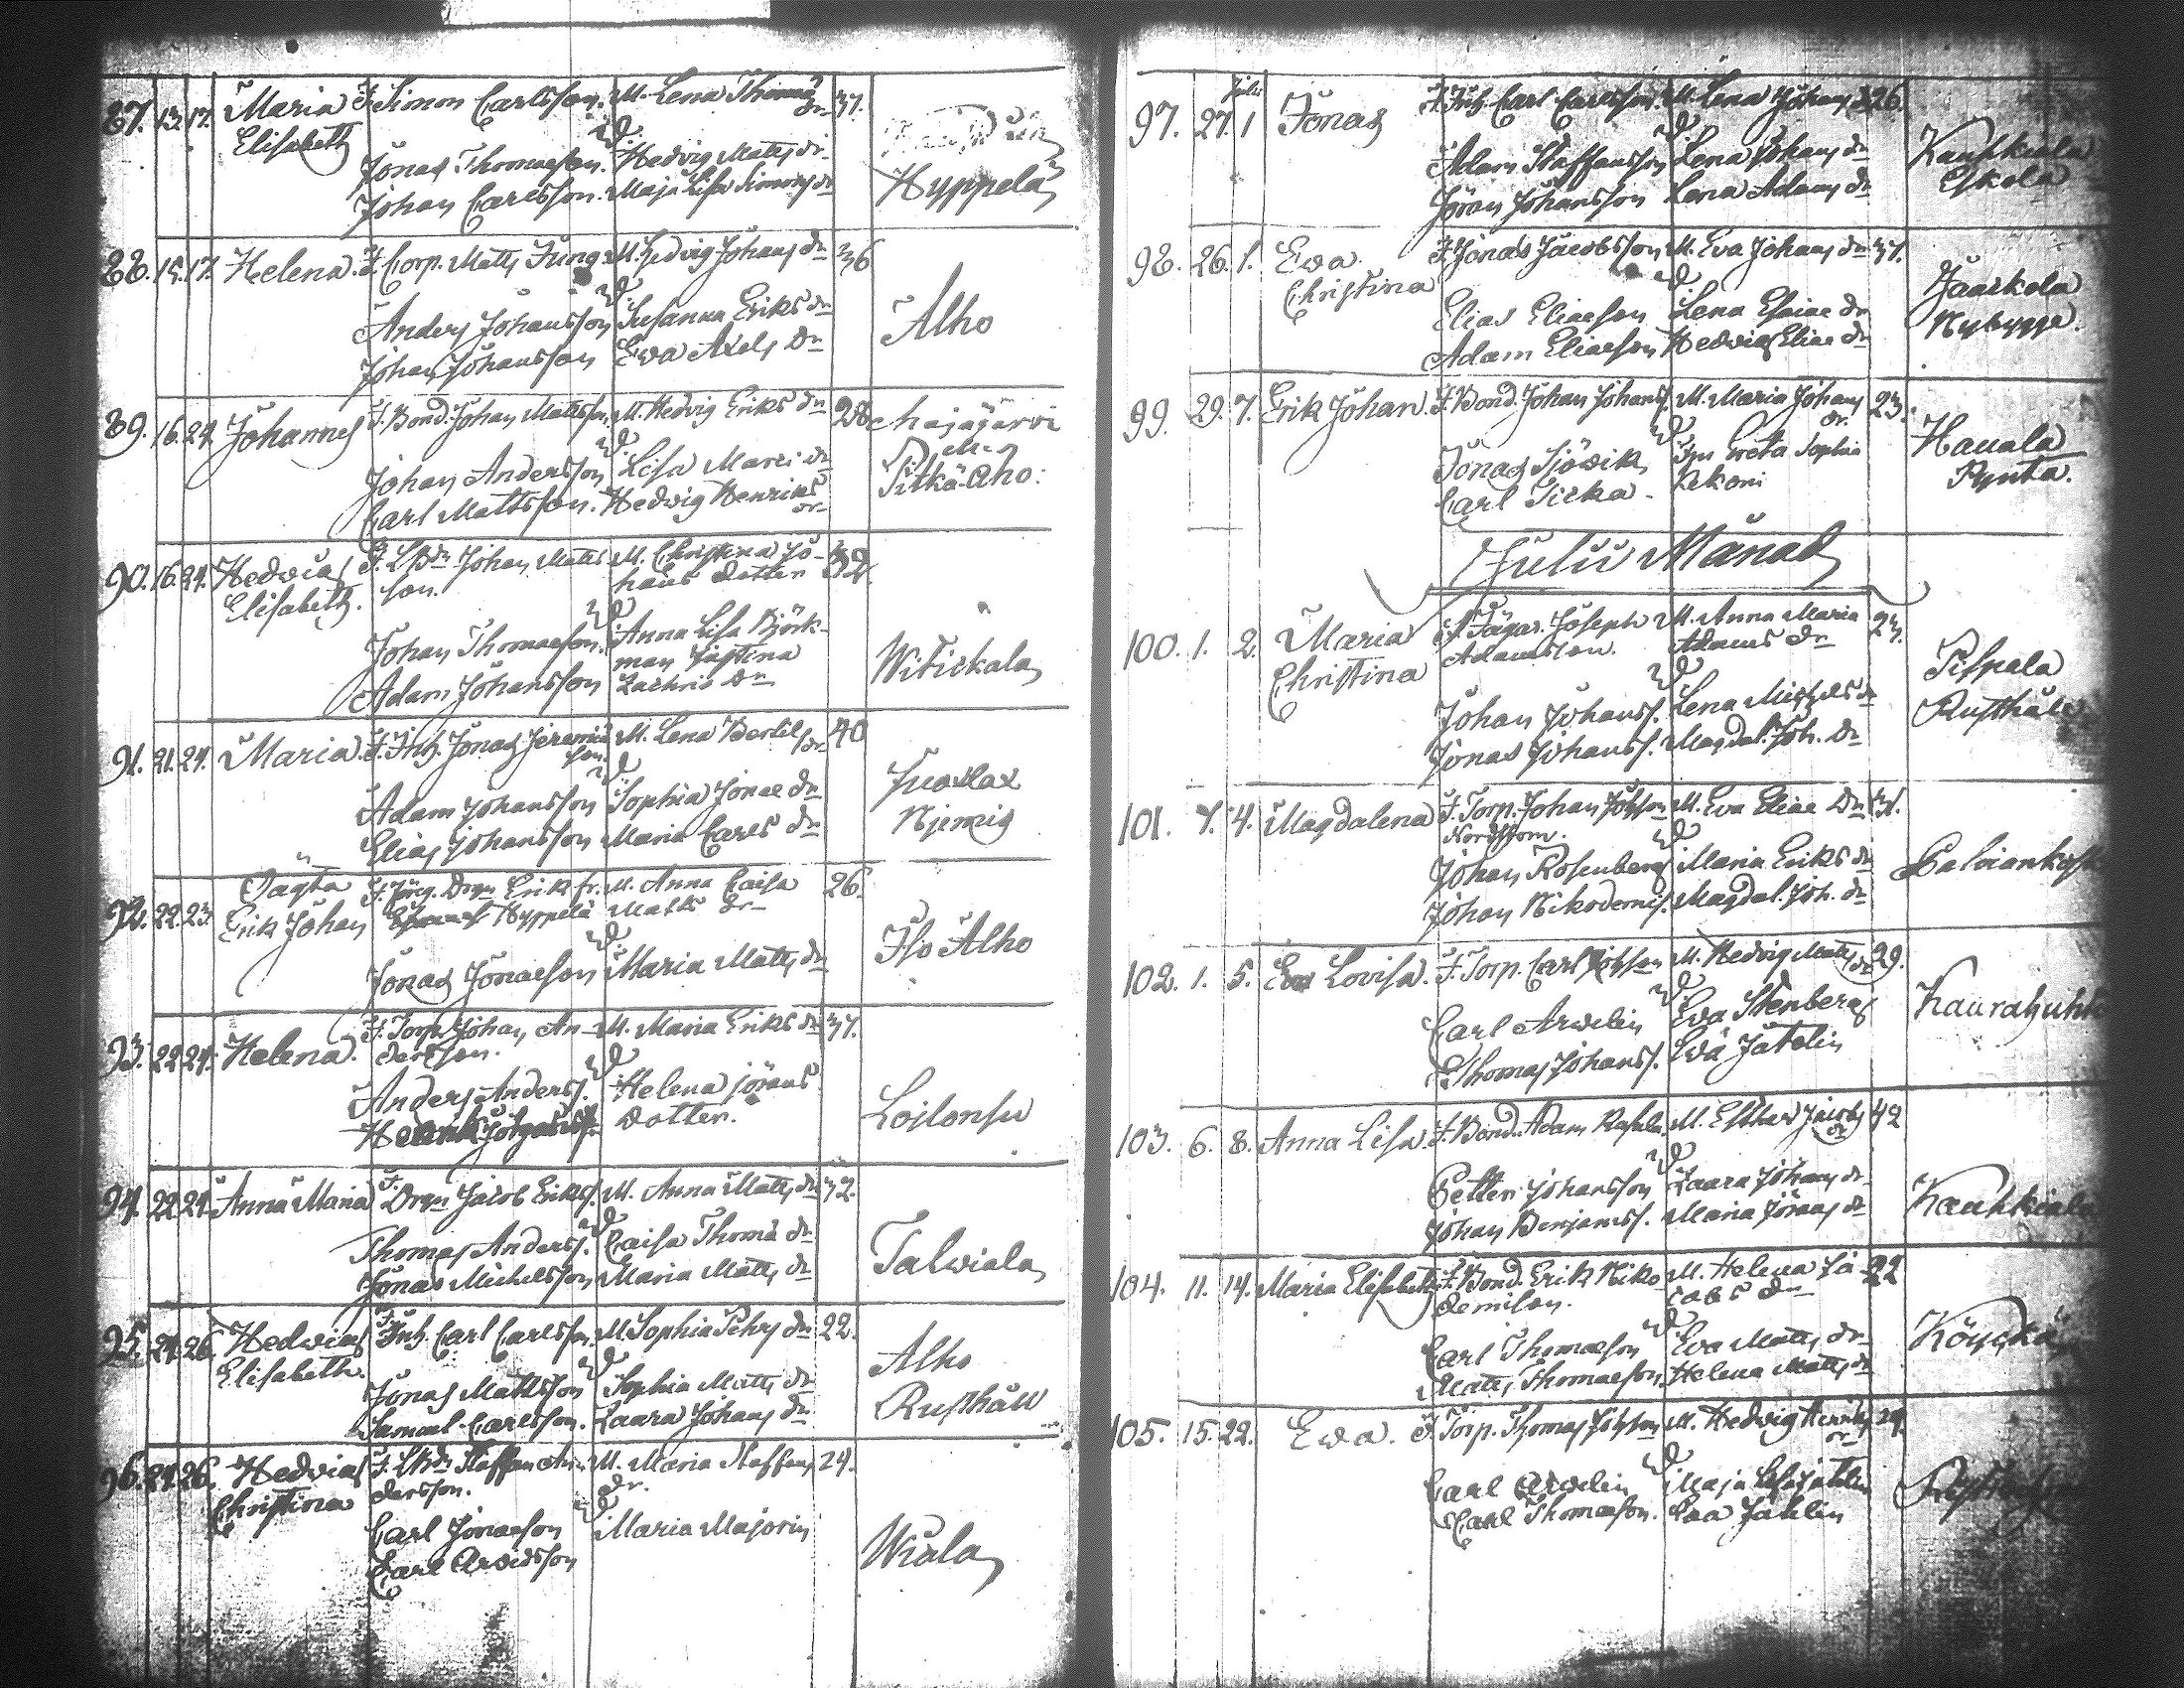 87. 13. 17. Maria F. Simon Carlsson. M. Lena Thomæ dr 37.
Elisabeth
Jonas Thomaeson. Hedvig Matts dr
Johan Carlsson. Maja Lisa Simons dr
Hyppelä
88. 15. 17. Helena. F. Corp. Matts Jung M. Hedvig Johans dr 36
Anders Johansson Susanna Eriks dr
Johan Johansson Eva Axels Dr
Alho
89. 16. 24. Johannes F. Bond. Johan Mattsson M. Hedvig Eriks dr 28
Johan Andersson Lisa
Carl Mattsson. Hedvig Henriks dr
Pitkä-Aho.
90. 16. 24. Hedvig F. Johan Matts M. Christina Jo- 32.
Elisabeth. son. hans dotter
Johan Thomaeson. Anna Lisa Björk-
man Justina
Adam Johansson Zachris Dr
Witickala
91. 21. 24. Maria. F. Inh. Jonas Jeremiæ M. Lena Bertils dr 40
son.
Adam Johansson Sophia Jonae dr
Elias Johansson Maria Carls dr
Njemis
Oägta
92. 22. 23. Erik Johan Erik fr. M. Anna Caisa 26.
Hyppelä Matts dr
Jonas Jonaeson Maria Matts dr
Iso Alho
93. 22. 24. Helena. F. Torp. Johan An- M. Maria Eriks dr 37.
dersson.
Anders Anderss. Helena Jörans
dotter.
Loilonsu
94. 22. 24. Anna Maria F. Drgn Jacob Erikss. M. Anna Matts dr 32.
Thomas Anderss. Caisa Thomæ dr
Jonas Michelsson Maria Matts dr
Talwiala
95. 24. 26. Hedvig F. Inh. Carl Carlsson. M. Sophia Pehrs dr 22.
Elisabeth.
Jonas Mattsson Sophia Matts dr
Samuel Carlsson. Laara Johans dr
Alho
Rusthåll
96. 24. 26. Hedvig F. Staffan An- M. Maria Staffans 24.
Christina dersson. dr.
Carl Jonaeson Maria Majorin
Carl Arvidsson
Wiala
Julii
97. 27. 1 Jonas F. Inh. Carl Carlsson. M. Lena Johans d. 26.
Adam Staffansson Lena Johans dr
Jöran Johansson Lena Adams dr
Kauhkiala
Eskola
98. 26. 1. Eva F. Jonas Jacobsson M. Eva Johans dr 37.
Christina
Elias Eliaeson Lena Esaiae dr
Adam Eliaeson Hedvig Eliae dr
Jaaskola
Nybygge.
99. 29. 7. Erik Johan. F. Bond. Johan Johanss. M. Maria Johans dr. 23.
Jonas Sjövik Greta Sophia
Carl Sirka. Rekoni
Hauala
Pynta.
Julii Månad
100. 1. 2. Maria F. Jägar. Joseph M. Anna Maria 23.
Christina Adamsson. Adams dr
Johan Johanss. Lena Michels dr
Jonas Johanss. Magdal. Joh. Dr
Pispala
Rusthåll
101. 7. 4. Magdalena F. Torp. Johan Johsson M. Eva Eliae Dr 31.
Nordstrom.
Johan Rosenberg Maria Eriks dr
Johan Nikodemis. Magdal. Joh. dr
102. 1. 5. Eva Lovisa. F. Torp. Carl Johsson M. Hedvig Matts dr 29.
Carl Arvelin Eva Stenberg
Thomas Johanss. Eva Jatelin
103. 6. 8. Anna Lisa. F. Bond. Adam M. Esther Jacobs dr 42
Petter Johansson Laara Johans dr
Johan Benjamss. Maria Jörans dr
Kauhkiala
104. 11. 14. Maria Elisabeth F. Bond. Erik Niko- M. Helena Ja- 22
demison. cobs dr
Carl Thomaeson Eva Matts dr
Matts Thomaeson. Helena Matts dr
105. 15. 22. Eva. F. Torp. Thomas Johsson M. Hedvig Henriks dr 29.
Carl Arvelin Maja Lisa Jatelin
Carl Thomaeson. Eva Jatelin